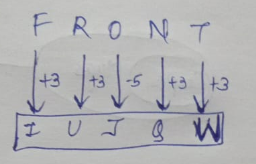 F R O N T
+3 +3 -5 +3 +3
I U J Q W